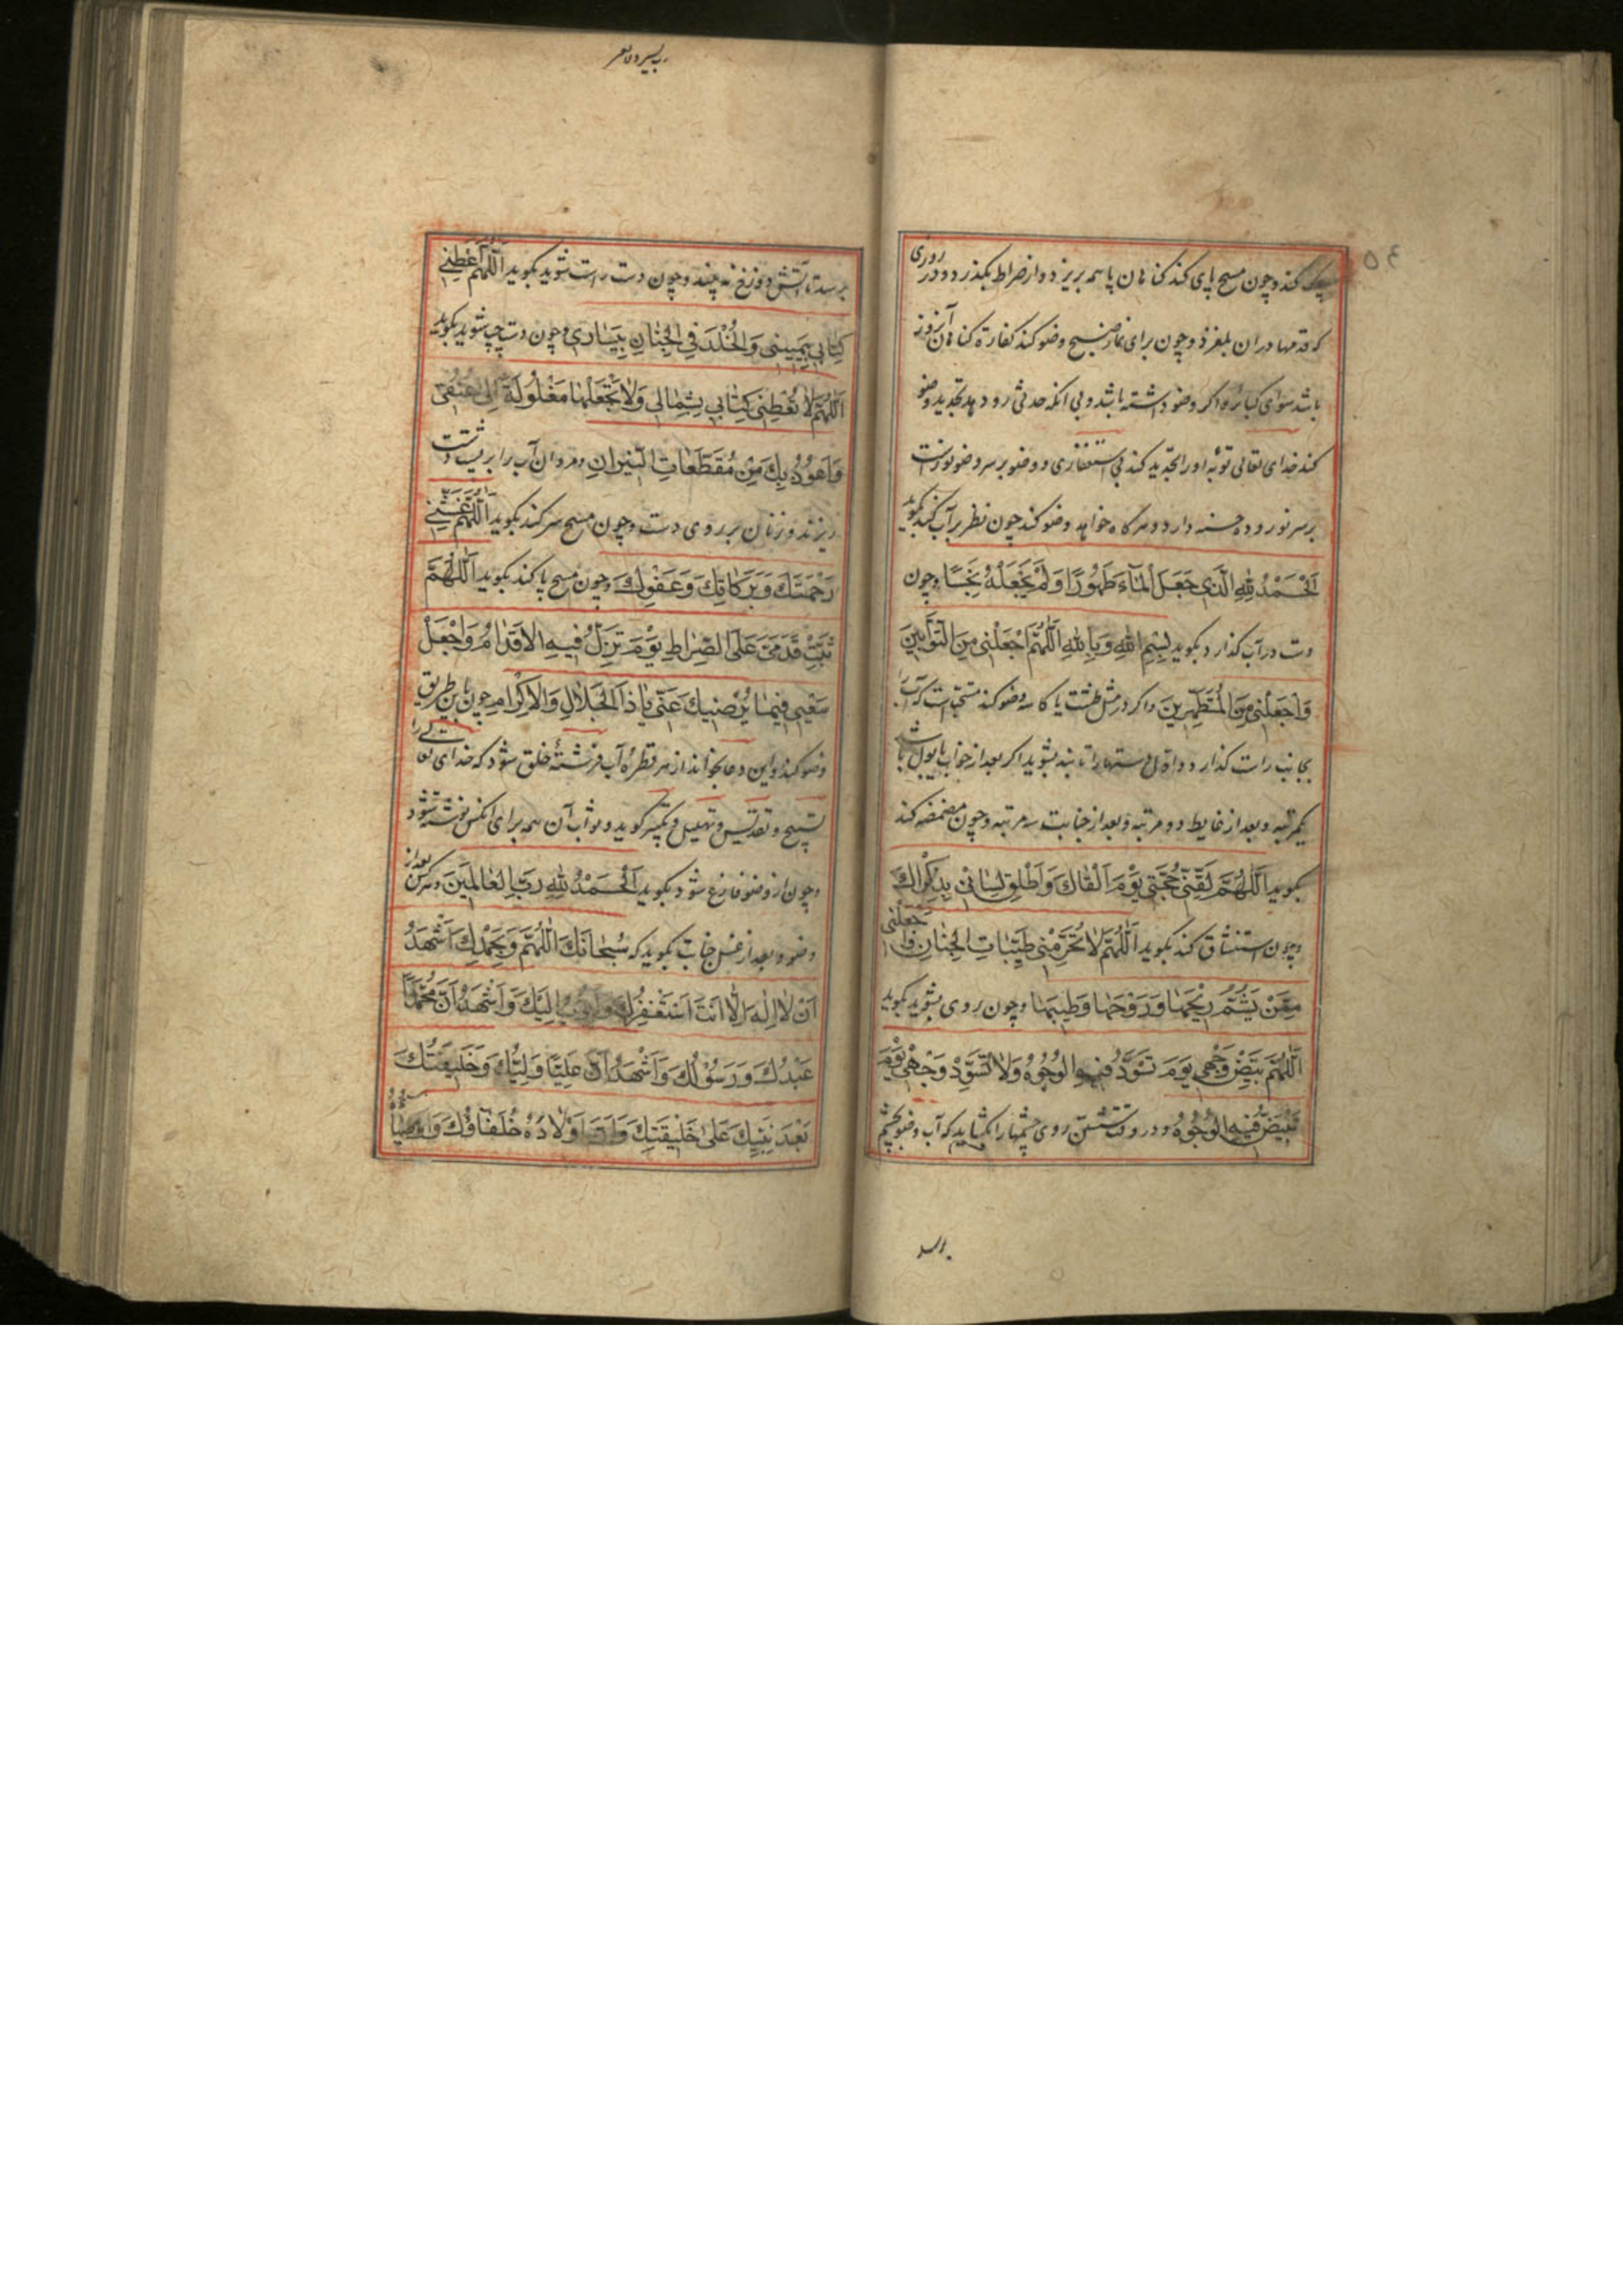 ۵۴
کند و چون مسح پای کند گناهان پا همه بریزد و از صراط بگذرد در روزی
که قدمها در ان بلغزد و چون برای نماز صبح وضو کند کفارة کناهان آنروز
باشد سوای کبائر و اگر وضو داشته باشد و بی انکه حدثی رو دهد تجدید وضو
کند خدای تعالی توبه او را تجدید کند بی استغفاری و وضو بر سر وضو نوریست
بر سر نور و ده حسنه دارد و هرگاه خواهد وضو کند چون نظر بر آب کند بگوید
اَلْحَمْدُ لِلّٰهِ الَّذِی جَعَلَ الْمَاءَ طَهُورًا وَلَمْ یَجْعَلْهُ نَجِسًا و چون
دست در آب گذارد بگوید بِسْمِ اللهِ وَبِاللهِ اَللّٰهُمَّ اجْعَلْنِی مِنَ التَّوَّابِینَ
وَاجْعَلْنِی مِنَ الْمُتَطَهِّرِینَ و اگر در مثل طشت یا کاسه وضو کند مستحب است که آنرا
بجانب راست گذارد و اول دستها را تا بند بشوید اگر بعد از خواب یا بول باشد
یکمرتبه و بعد از غایط دو مرتبه و بعد از جنابت سه مرتبه و چون مضمضه کند
بگوید اَللّٰهُمَّ لَقِّنِّی حُجَّتِی یَوْمَ اَلْقَاكَ وَاَطْلِقْ لِسَانِی بِذِكْرَاكَ
و چون استنشاق کند بگوید اَللّٰهُمَّ لَا تُحَرِّمْنِی طَیِّبَاتِ الْجِنَانِ وَاجْعَلْنِی
مِمَّنْ یَشُمُّ رِیْحَهَا وَرَوْحَهَا وَطِیبَهَا و چون روی بشوید بگوید
اَللّٰهُمَّ بَیِّضْ وَجْهِی یَوْمَ تَسْوَدُّ فِیهِ الْوُجُوهُ وَلَا تُسَوِّدْ وَجْهِی یَوْمَ
تَبْیَضُّ فِیهِ الْوُجُوهُ و در وقت شستن روی چشمها را بگشاید که آب وضو بچشم
برسد تا آتش دوزخ نه بیند و چون دست راست شوید بگوید اَللّٰهُمَّ اَعْطِنِی
كِتَابِی بِیَمِینِی وَالْخُلْدَ فِی الْجِنَانِ بِیَسَارِی و چون دست چپ شوید بگوید
اَللّٰهُمَّ لَا تُعْطِنِی كِتَابِی بِشِمَالِی وَلَا تَجْعَلْهَا مَغْلُولَةً اِلٰی عُنُقِی
وَاَعُوذُ بِكَ مِنْ مُقَطَّعَاتِ النِّیرَانِ و مردان آب را بر پشت دست
ریزند و زنان بر روی دست و چون مسح سر کند بگوید اَللّٰهُمَّ غَشِّنِی
رَحْمَتَكَ وَبَرَكَاتِكَ وَعَفْوِكَ و چون مسح پا کند بگوید اَللّٰهُمَّ
ثَبِّتْ قَدَمَیَّ عَلَی الصِّرَاطِ یَوْمَ تَزِلُّ فِیهِ الْاَقْدَامُ وَاجْعَلْ
سَعْیِی فِیمَا یُرْضِیكَ عَنِّی یَا ذَا الْجَلَالِ وَالْاِكْرَامِ چون باین طریق
وضو کند و این دعا بخواند از هر قطره آب فرشتهٔ خلق شود که خدای تعالی را
تسبیح و تقدیس و تهلیل و تکبیر گوید و ثواب آن همه برای انکس نوشته شود
و چون از وضو فارغ شود بگوید اَلْحَمْدُ لِلّٰهِ رَبِّ الْعَالَمِینَ و هرکس بعد از
وضو و بعد از غسل جنابت بگوید که سُبْحَانَكَ اللّٰهُمَّ وَبِحَمْدِكَ اَشْهَدُ
اَنْ لَا اِلٰهَ اِلَّا اَنْتَ اَسْتَغْفِرُكَ وَاَتُوبُ اِلَیْكَ وَاَشْهَدُ اَنَّ مُحَمَّدًا
عَبْدُكَ وَرَسُولُكَ وَاَشْهَدُ اَنَّ عَلِیًّا وَلِیُّكَ وَخَلِیفَتُكَ
بَعْدَ نَبِیِّكَ عَلٰی خَلِیقَتِكَ وَاَنَّ اَوْلَادَهُ خُلَفَاؤُكَ
برسد